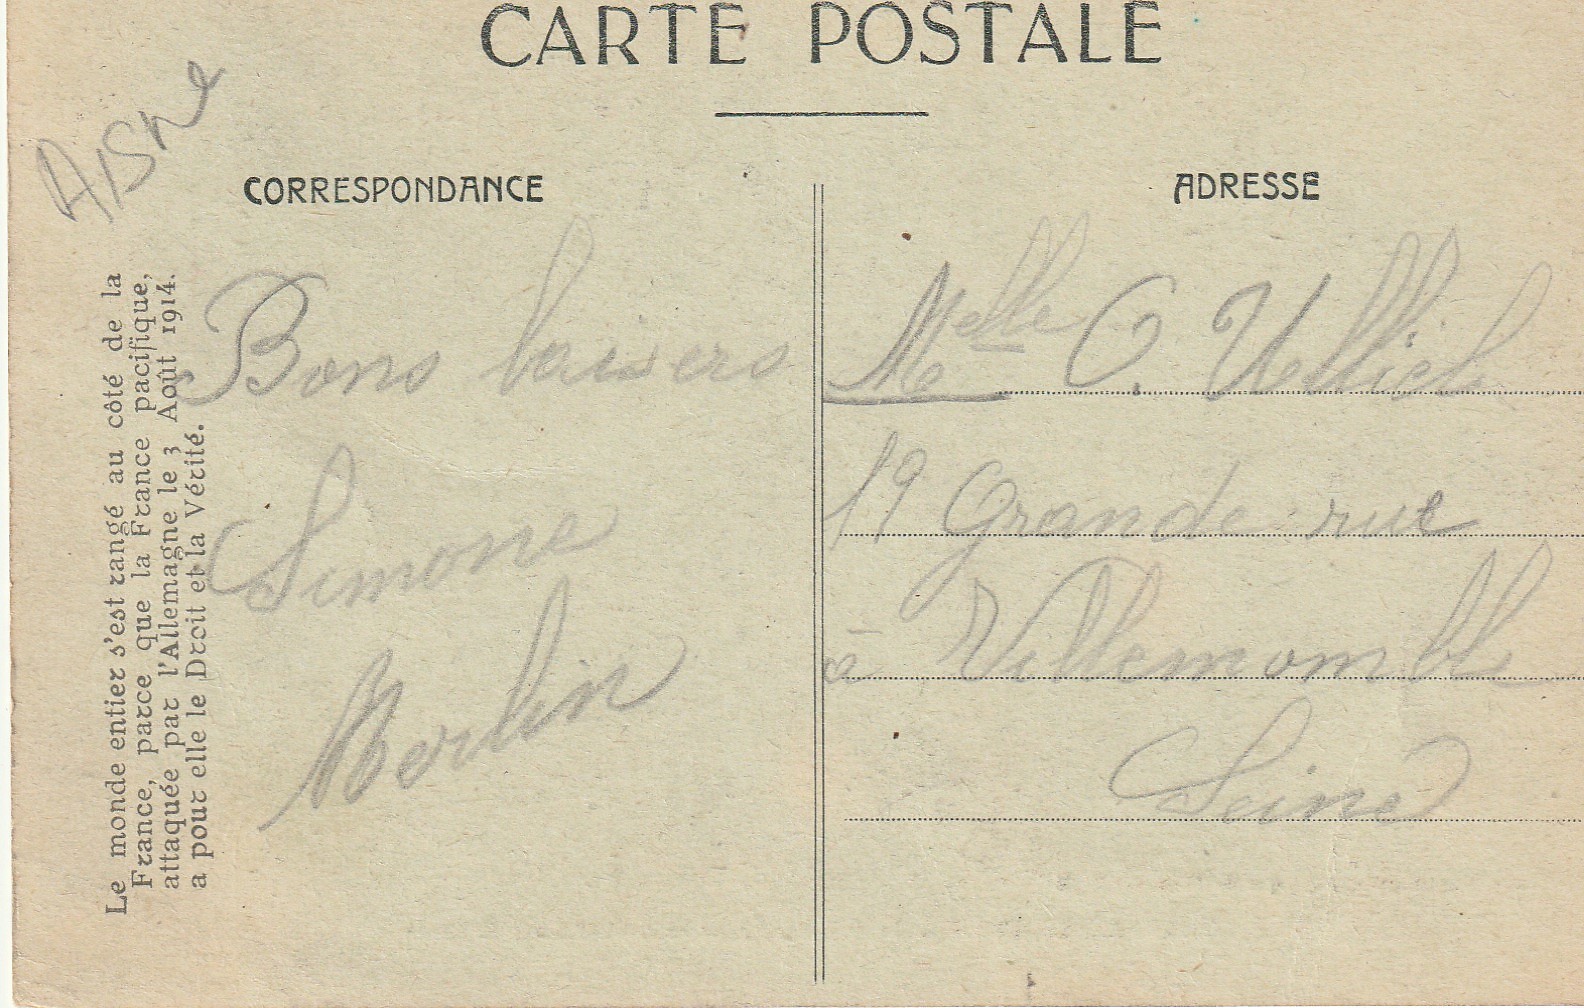 CARTE POSTALE
Aisne
CORRESPONDANCE
Bons baisers
Simone
Le monde entier s'est rangé au côté de la
France, parce que la France pacifique,
attaquée par l'Allemagne le 3 Août 1914.
a pour elle le Droit et la Vérité.
ADRESSE
Melle O.
19 Grande rue
à Villemomble
Seine